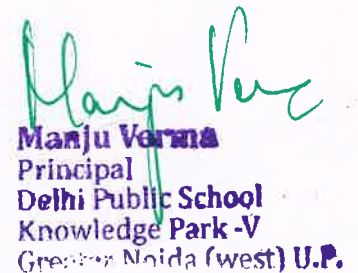 Manju Verma
Manju Verma
Principal
Delhi Public School
Knowledge Park -V
Greater Noida (west) U.P.